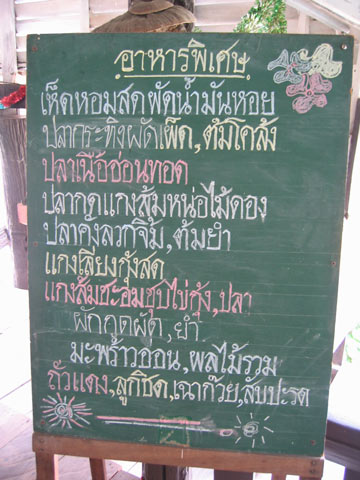 อาหารพิเศษ
เห็ดหอมสดผัดน้ำมันหอย
ปลากระทิงผัดเผ็ด,ต้มโคล้ง
ปลาเนื้ออ่อนทอด
ปลากดแกงส้มหน่อไม้ดอง
ปลาคังลวกจิ้ม,ต้มยำ
แกงเลียงกุ้งสด
แกงส้มชะอมชุบไข่กุ้ง,ปลา
ผักกูดผัด,ยำ
มะพร้าวอ่อน,ผลไม้รวม
ถั่วแดง,ลูกชิด,เฉาก๊วย,สับปะรด